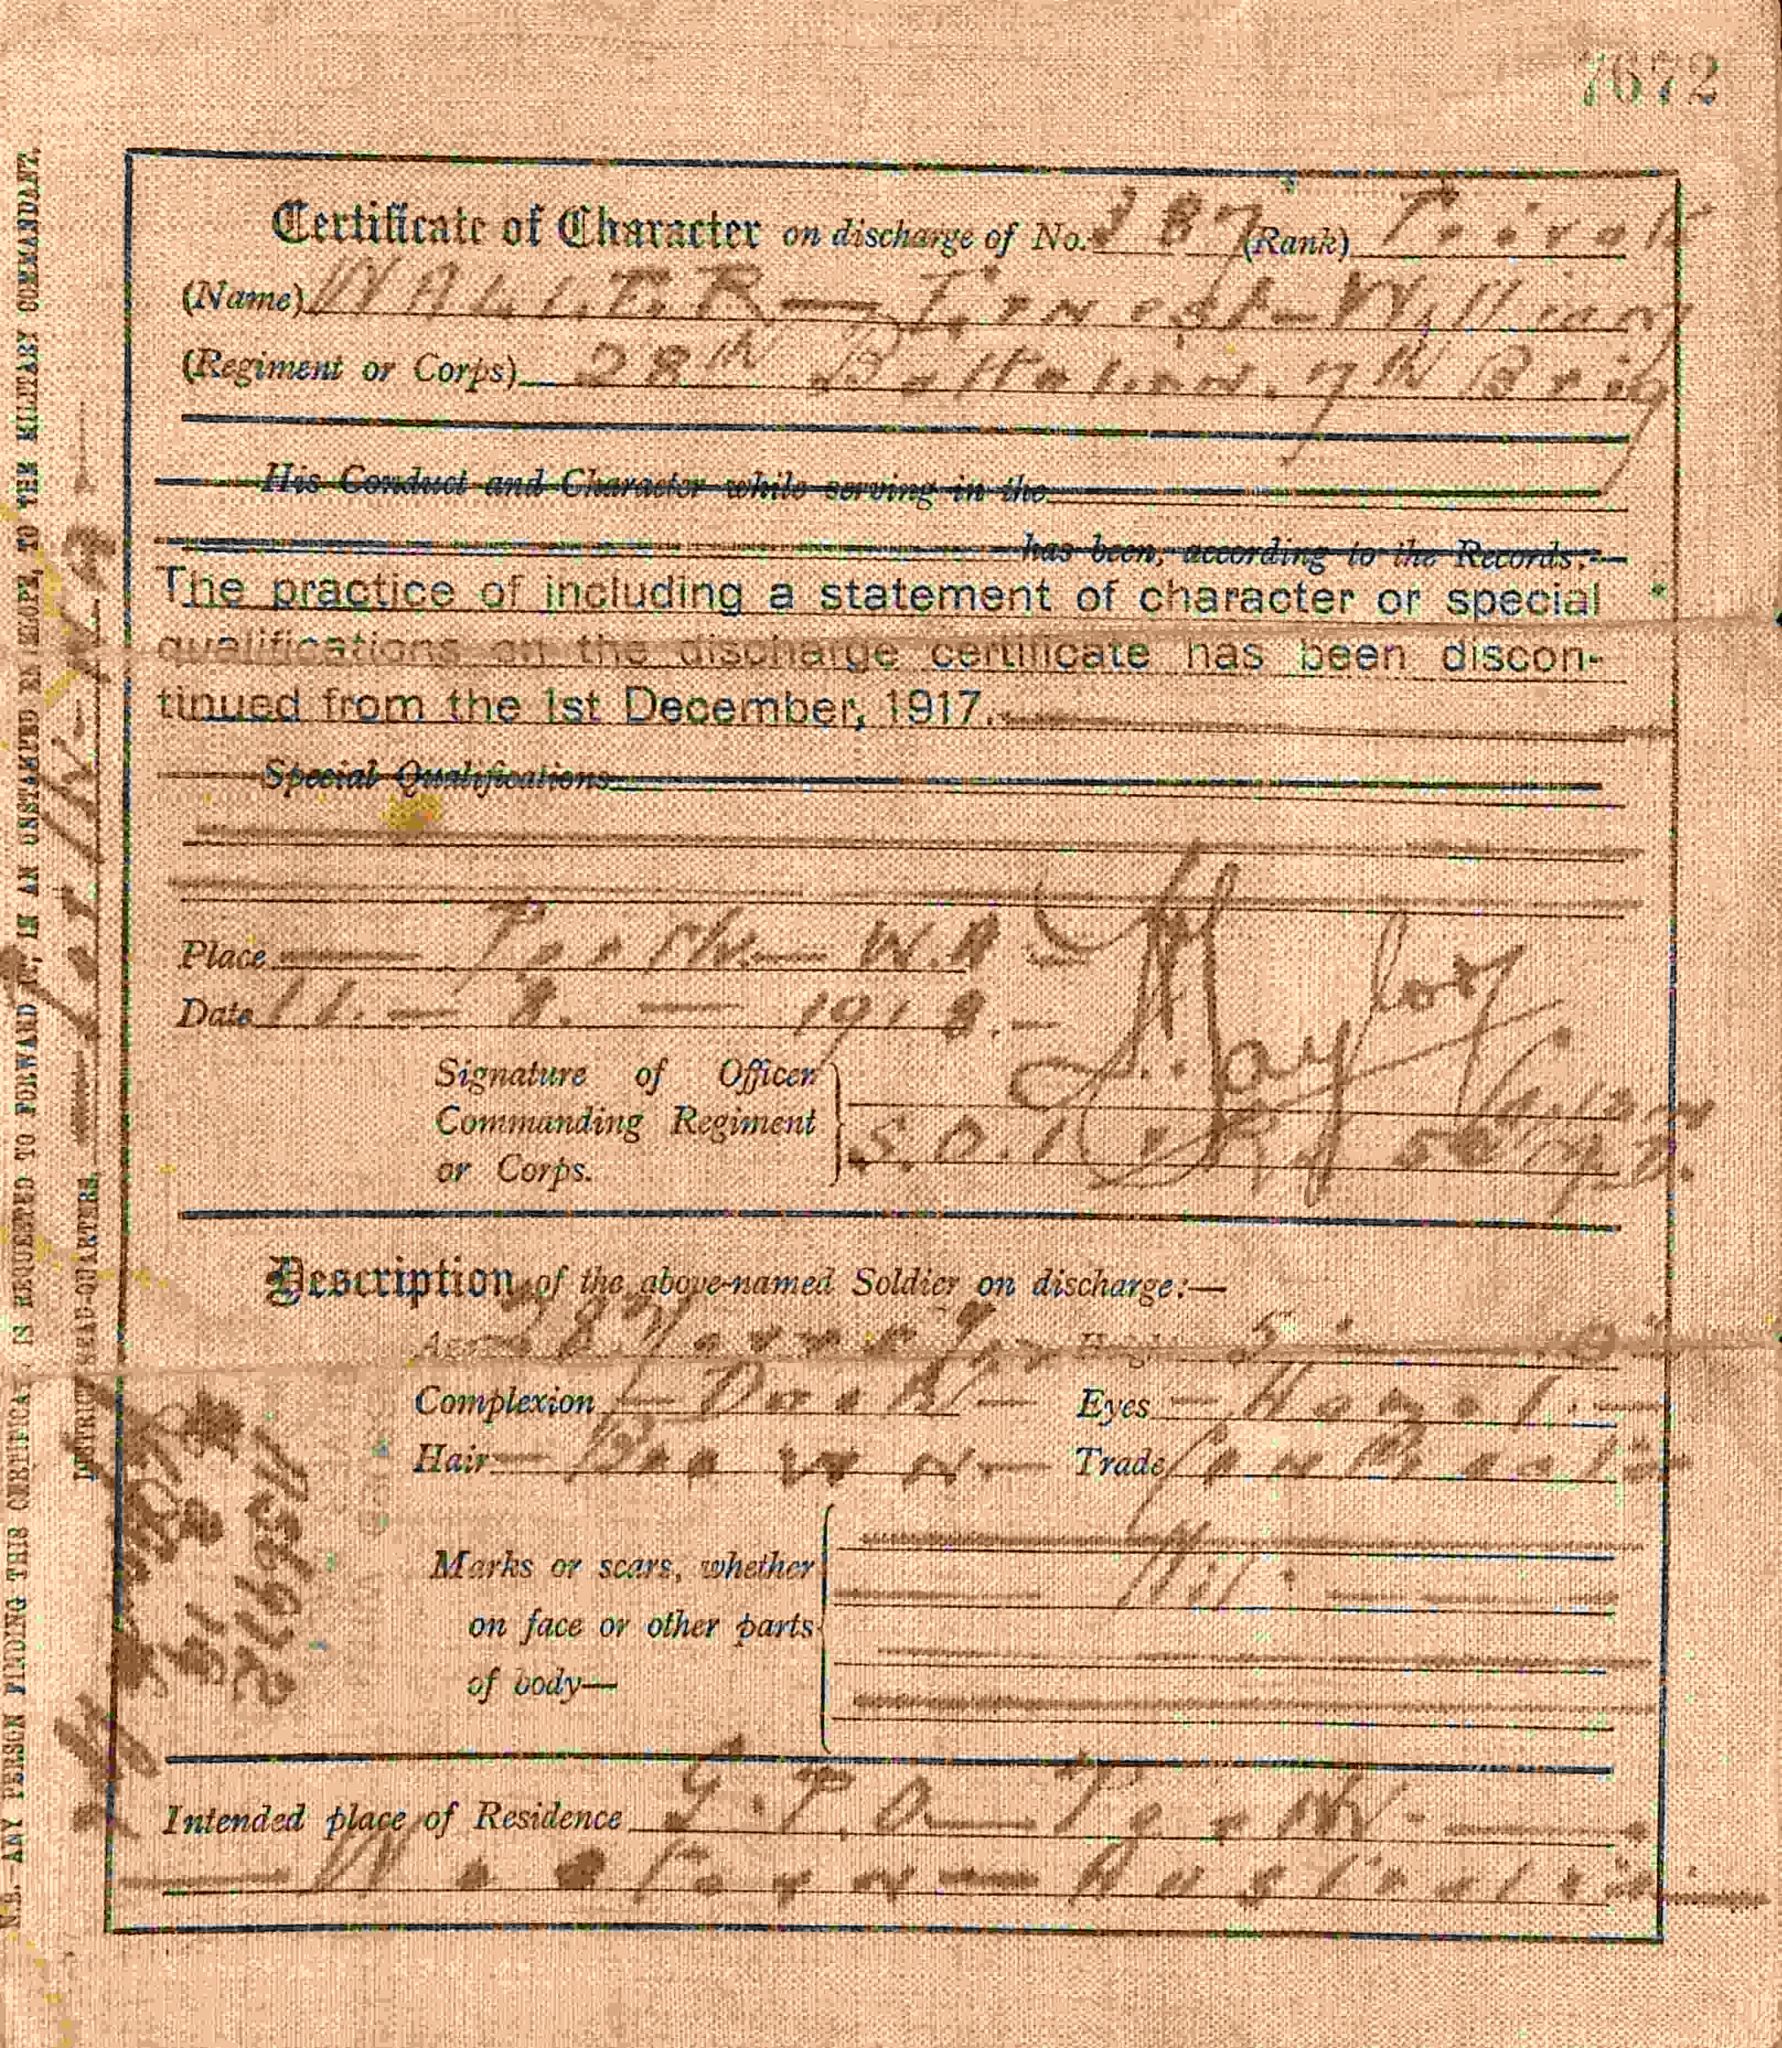 7672
Certificate of Character on discharge of No. 387 (Rank) Private
(Name) WALLER — Ernest William
(Regiment or Corps) 28th Battalion. 7th Brig
His Conduct and Character while serving in the
has been, according to the Records:—
The practice of including a statement of character or special
qualifications on the discharge certificate has been discon-
tinued from the 1st December, 1917.
Special Qualifications
Place — Perth — W.A —
Date 11. — 8. — 1918. —
Signature of Officer
Commanding Regiment
or Corps.
Taylor
Captn
S.O.I. & R.
Description of the above-named Soldier on discharge:—
Age 28 Years Height 5
Complexion — Dark — Eyes — Hazel. —
Hair — Brown — Trade
Marks or scars, whether
on face or other parts
of body—
Nil.
Intended place of Residence G.P.O — Perth. —
— Western — Australia —
N.B.—ANY PERSON FINDING THIS CERTIFICATE IS REQUESTED TO FORWARD IT, IN AN UNSTAMPED ENVELOPE, TO THE MILITARY COMMANDANT,
DISTRICT HEAD-QUARTERS, — Perth — W.A —